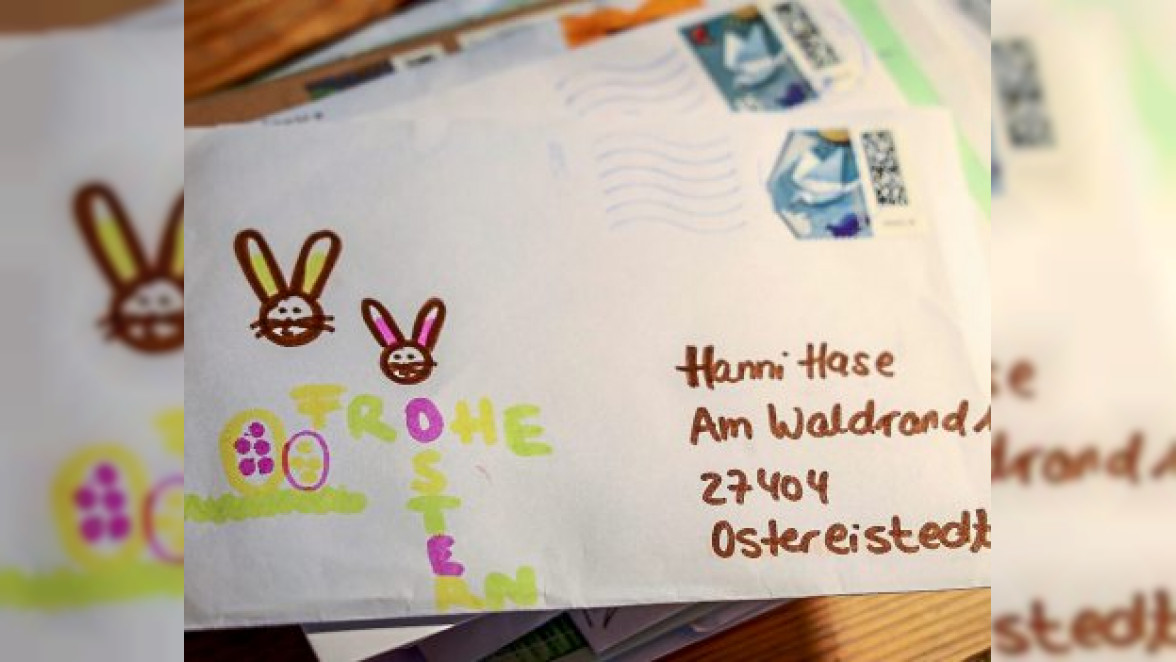 FROHE
OSTERN
Hanni Hase
Am Waldrand 1
27404
Ostereistedt